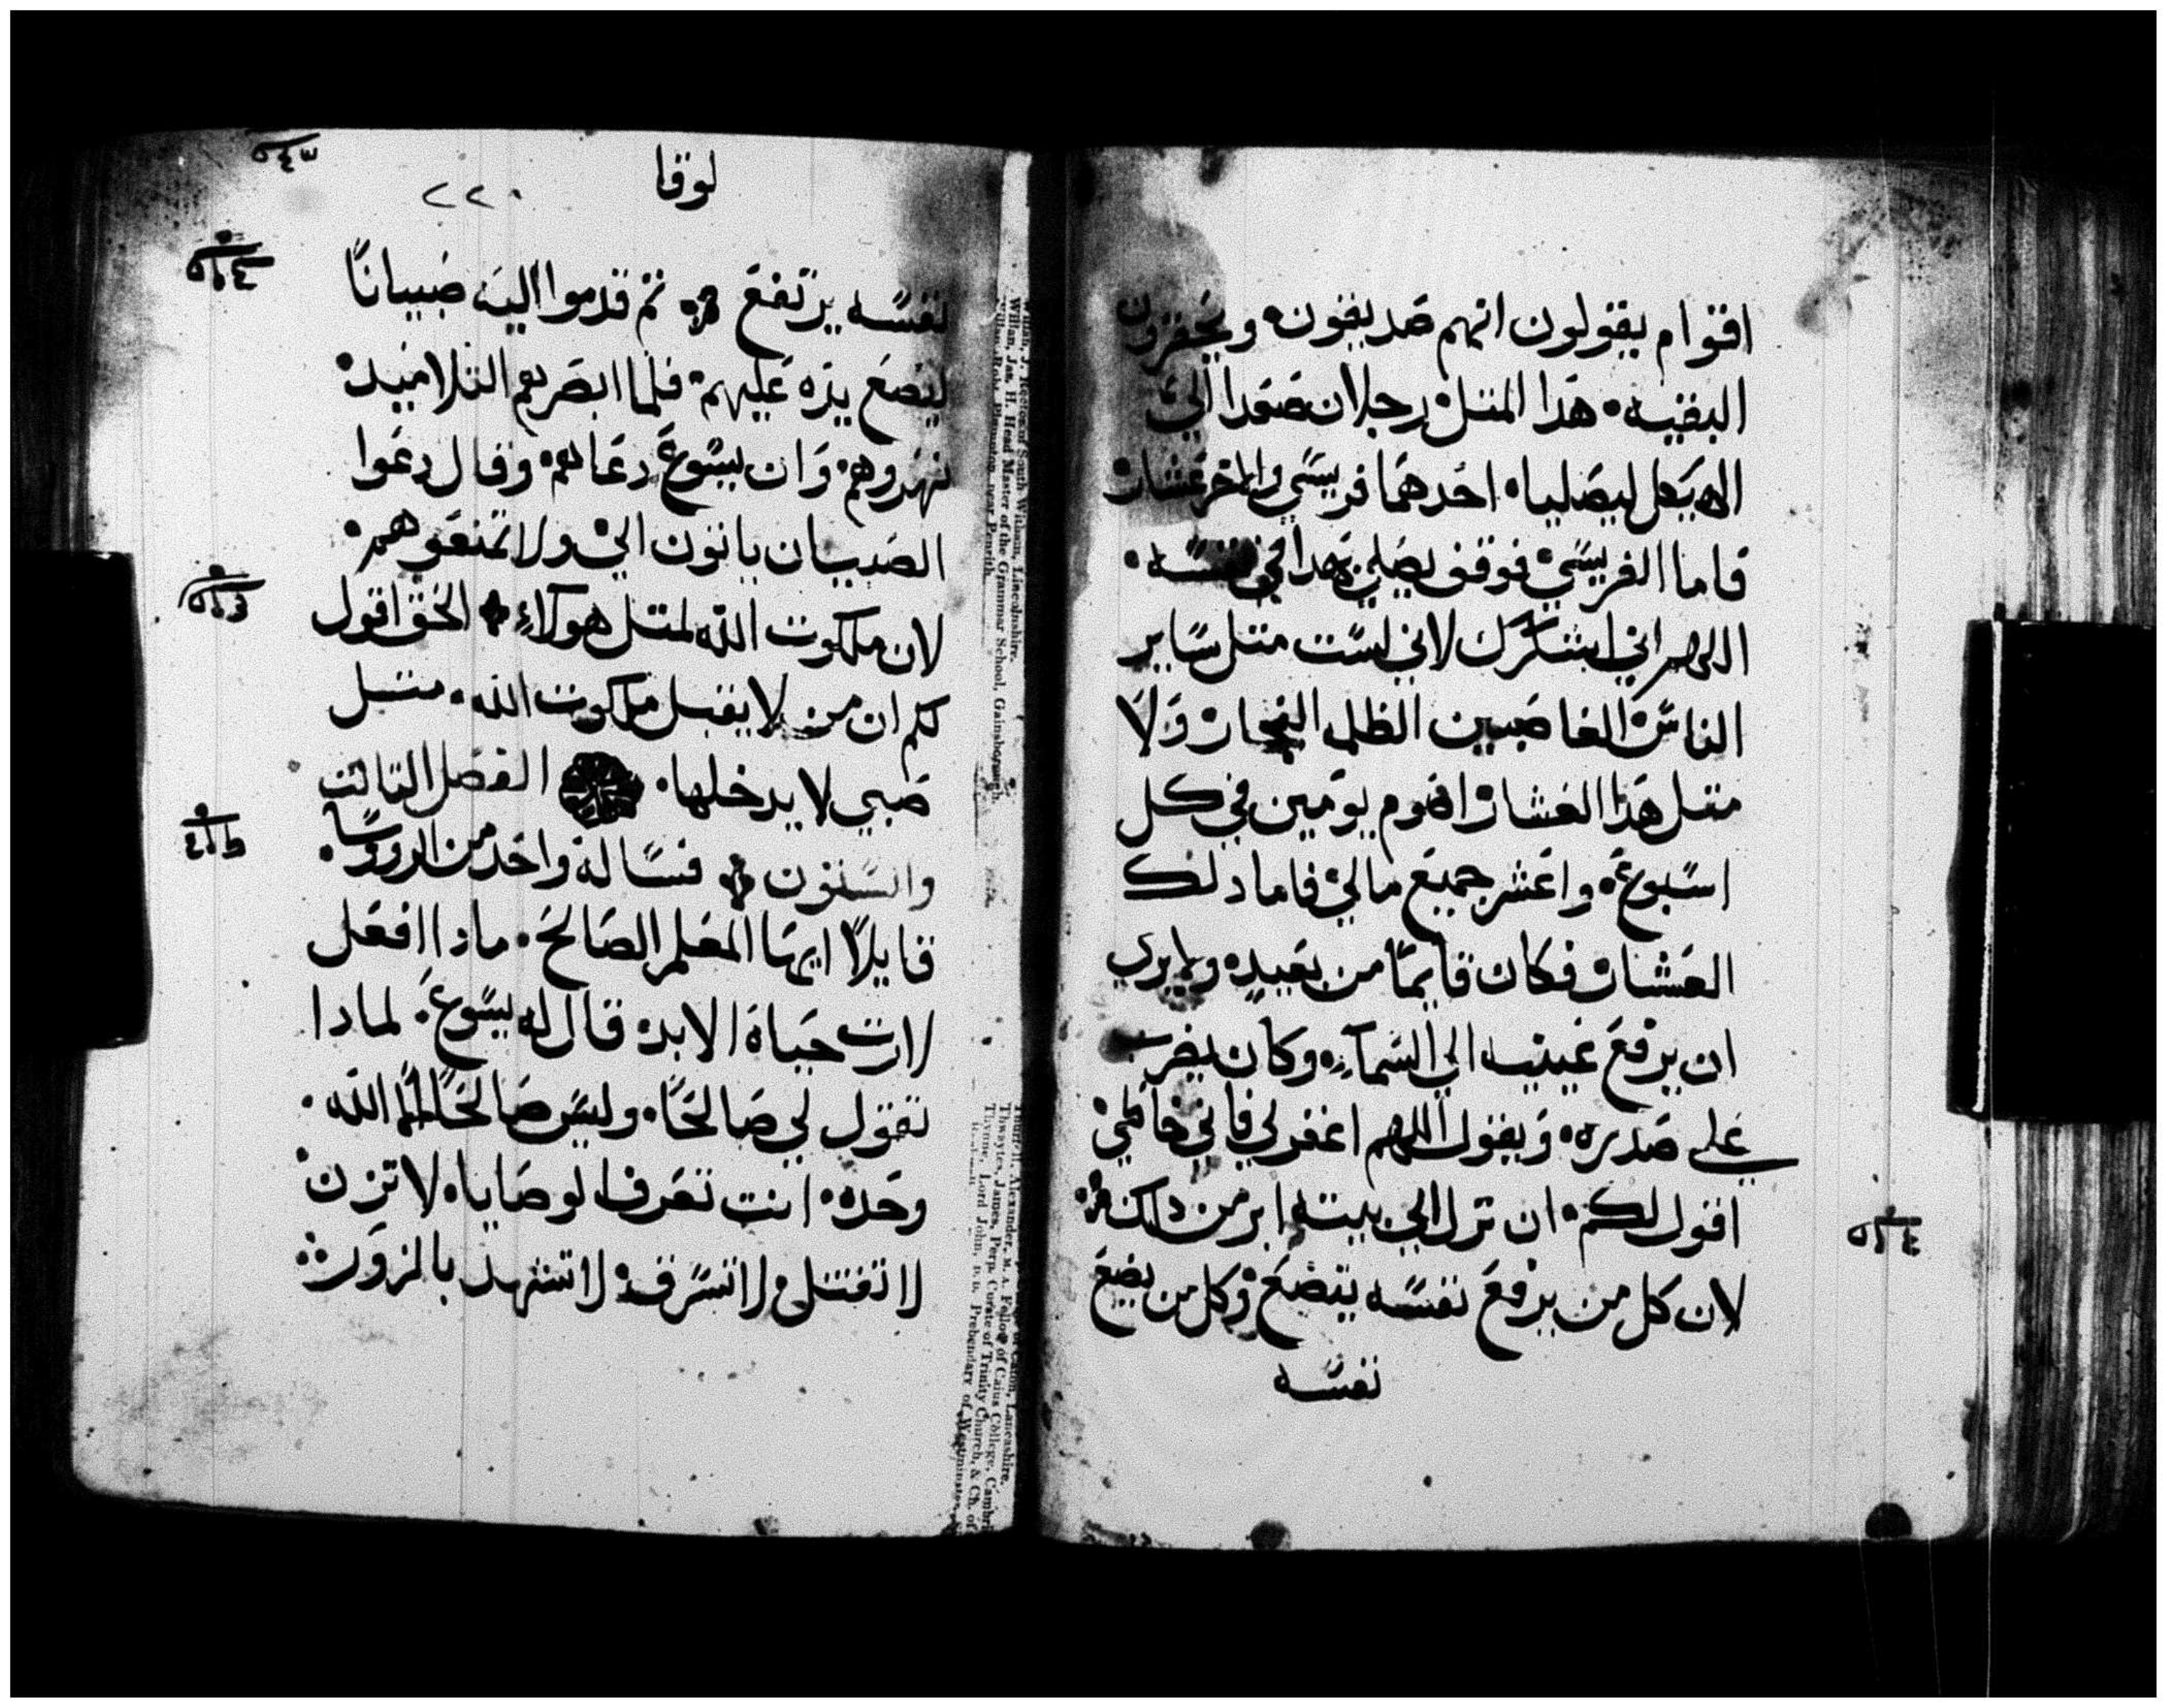 اقوام يقولون انهم صديقون ويحقرون
البقيه هدا المتل رجلان صعدا الي
الهيكل ليصليا احدهما فريسي والاخر عشار
فاما الفريسي فوقف يصلي بهدا في نفسه
اللهم اني اشكرك لاني لست متل ساير
الناس الغاصبين الظلمه الفجار ولا
متل هدا العشار اصوم يومين في كل
اسبوع واعشر جميع مالي فاما دلك
العشار فكان قايما من بعيد ولم يري
ان يرفع عينيه الي السمآء وكان يضرب
علي صدره ويقول اللهم اغفر لي فاني خاطي
اقول لكم ان نزل الي بيته ابر من داك
لان كل من يرفع نفسه يتضع وكل من يضع
نفسه
لوقا
٢٢٠
نفسه يرتفع تم قدموا اليه صبيانا
ليضع يده عليهم فلما ابصرهم التلاميد
نهروهم وان يسوع دعاهم وقال دعوا
الصبيان ياتون الي ولا تمنعوهم
لان ملكوت الله لمتل هولاء الحق اقول
لكم ان من لا يقبل ملكوت الله متل
صبي لا يدخلها الفصل التالت
والستون فساله واحد من الروسا
قايلا ايها المعلم الصالح مادا افعل
لارت حياة الابد قال له يسوع لمادا
تقول لي صالحا وليس صالحا الا الله
وحده انت تعرف الوصايا لا تزن
لا تقتل لا تسرق لا تشهد بالزور